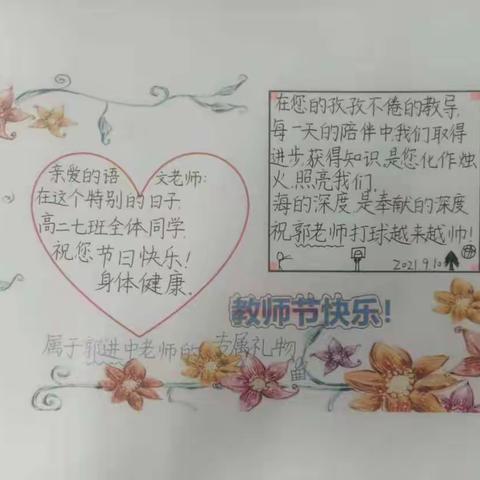 亲爱的语 文老师:
在这个特别的日子,
高二七班全体同学,
祝您节日快乐!
身体健康.
在您的孜孜不倦的教导,
每一天的陪伴中,我们取得
进步,获得知识,是您化作烛
火,照亮我们,
海的深度,是奉献的深度
祝郭老师打球越来越帅!
2021.9.10
教师节快乐!
属于郭进中老师的专属礼物